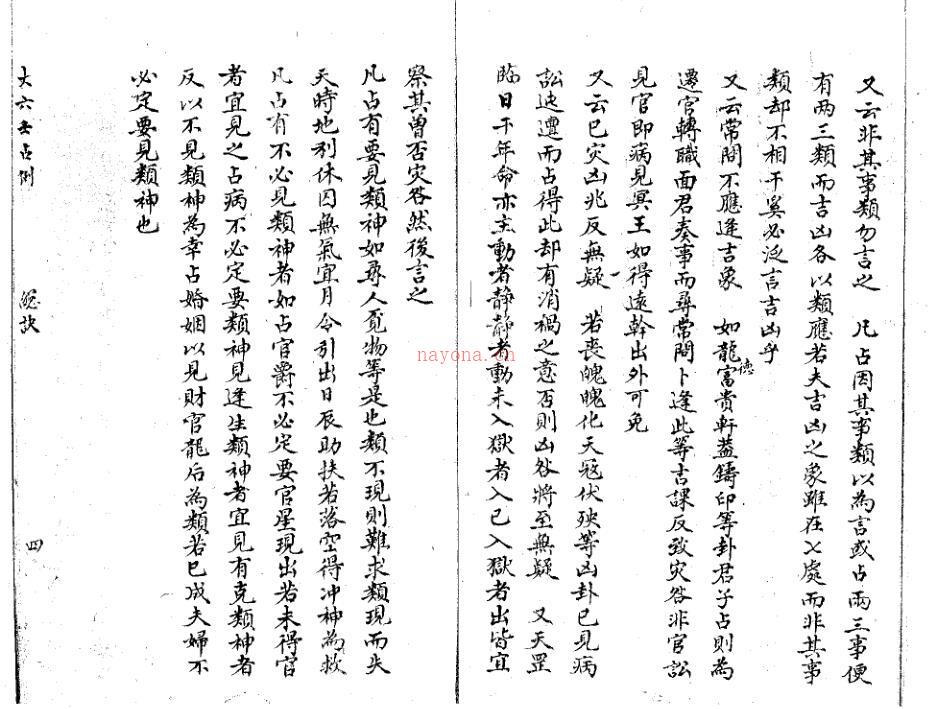 又云非其事類勿言之　凡占因其事類以為言或占兩三事便
有兩三類而吉凶各以類應若夫吉凶之象雖在父處而非其事
類却不相干奚必泛言吉凶乎
又云常問不應逢吉象　如龍德富貴軒蓋鑄印等卦君子占則為
遷官轉職面君奏事而尋常問卜逢此等吉課反致灾咎非官訟
見官即病見冥王如得遠幹出外可免
又云已灾凶兆反無疑　若喪魄魄化天寇伏殃等凶卦已見病
訟迍邅而占得此却有消禍之意否則凶咎將至無疑　又天罡
臨日干年命亦主動者靜靜者動未入獄者入已入獄者出皆宜
察其曾否灾咎然後言之
凡占有要見類神如尋人覓物等是也類不現則難求類現而失
天時地利休囚無氣宜月令引出日辰助扶若落空得冲神為救
凡占有不必見類神者如占官爵不必定要官星現出若未得官
者宜見之占病不必定要類神見逢生類神者宜見有克類神者
反以不見類神為幸占婚姻以見財官龍后為類若已成夫婦不
必定要見類神也
大六壬占例
總訣
四
nayona.cn